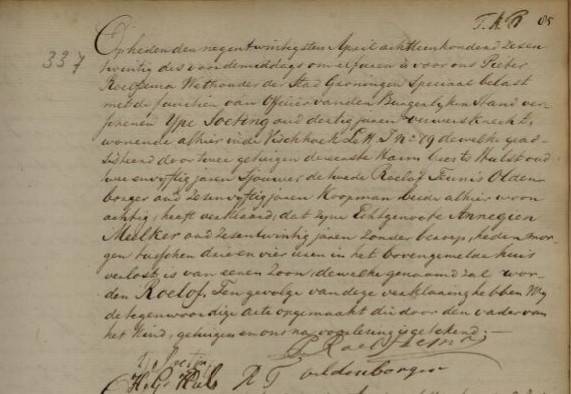 T. A. B. 85
337
Op heden den negentwintigsten April achttienhonderd zesen
twintig des voormiddags om elf uren is voor ons Pieter
Roelfzema Wethouder der Stad Groningen Speciaal belast
met de functien van Officier van den Burgerlyken Stand ver-
schenen Ype Soeting oud dertig jaren verwersknecht,
wonende alhier in de Visschhoek Lett. J No 79 dewelke gead-
sisteerd door twee getuigen de eerste Harm Hulst oud
twee en vyftig jaren Sjouwer, de tweede Roelof Teunis Olden-
borger oud zesenvyftig jaren Koopman beide alhier woon
achtig, heeft verklaard, dat zyne Echtgenoote Annegien
Meelker oud zesentwintig jaren zonder beroep, heden mor-
gen tusschen drie en vier uren in het bovengemelde huis
verlost is van eenen Zoon, dewelke genaamd zal wor-
den Roelof. Ten gevolge van deze verklaring hebben Wy
de tegenwoordige acte opgemaakt die door den vader van
het Kind, getuigen en ons na voorlezing is getekend; —
P. Roelfzema
Y. Soeting
H. Gs Hulst R T oldenborger